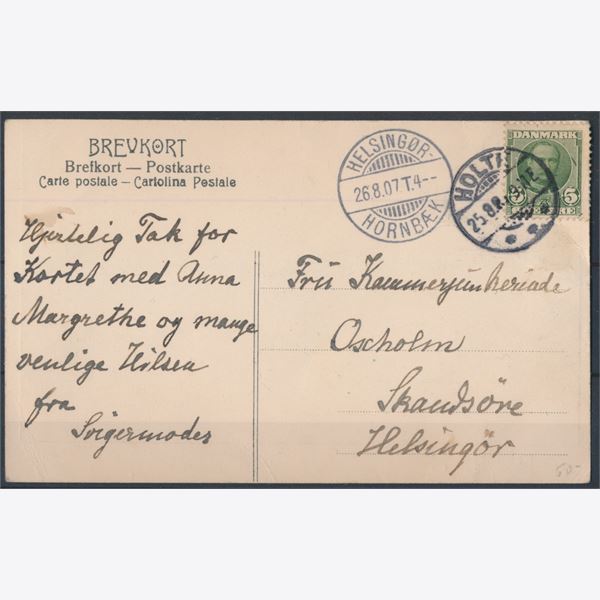 BREVKORT
Brefkort — Postkarte
Carte postale — Cartolina Postale
HELSINGØR-
26.8.07.T.4--
HORNBÆK
HOLTE
25.8.
DANMARK
5
ØRE
Hjertelig Tak for
Kortet med Anna
Margrethe og mange
venlige Hilsen
fra
Svigermoder
Fru Kammerjunkerinde
Oxholm
Skandsöre
Helsingör
50-